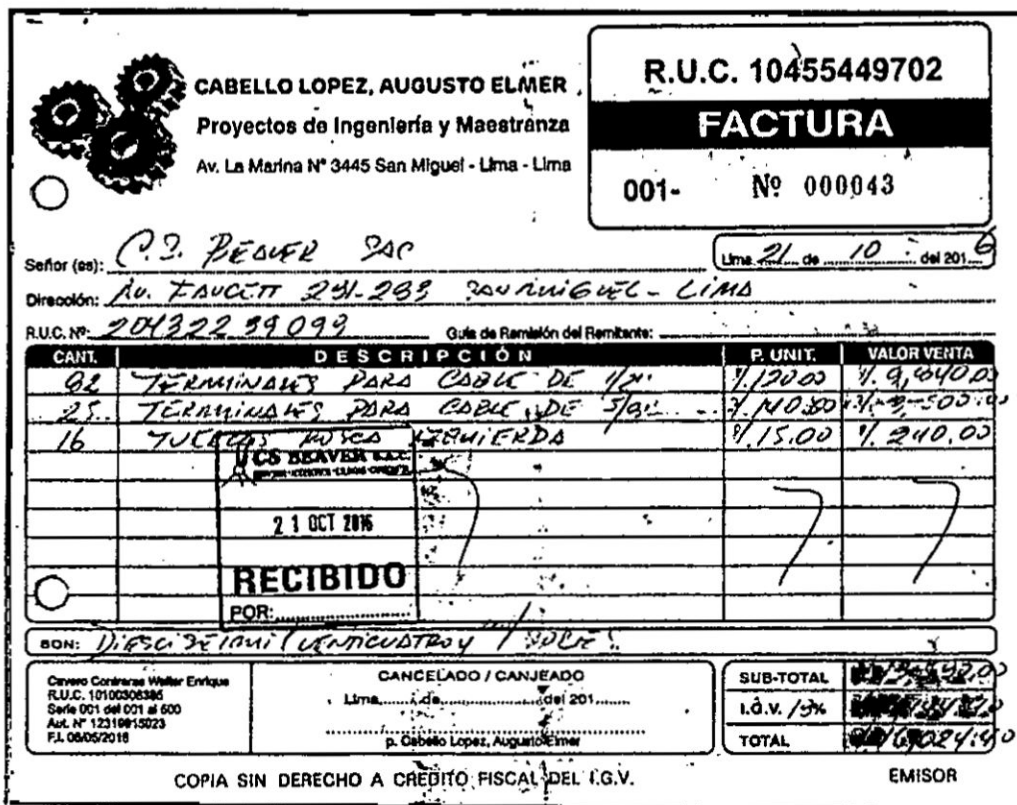 CABELLO LOPEZ, AUGUSTO ELMER
Proyectos de Ingeniería y Maestranza
Av. La Marina N° 3445 San Miguel - Lima - Lima
R.U.C. 10455449702
FACTURA
001- Nº 000043
Señor (es): C.S. BEAVER SAC
Lima 21 de 10 del 2016
Dirección: AV. FAUCETT 291-293 SAN MIGUEL - LIMA
R.U.C. Nº: 20432239099 Guía de Remisión del Remitente:
CANT. DESCRIPCIÓN P. UNIT. VALOR VENTA
82 TERMINALES PARA CABLE DE 1/2" 120.00 9,840.00
25 TERMINALES PARA CABLE DE 5/8" 140.00 500.00
16 TUERCAS ROSCA IZQUIERDA 15.00 240.00
CS BEAVER S.A.C.
21 OCT 2016
RECIBIDO
POR:
SON:
Cavero Contreras Walter Enrique
R.U.C. 10100306385
Serie 001 del 001 al 500
Aut. N° 12319815023
F.I. 06/05/2016
CANCELADO / CANJEADO
Lima, de del 201
p. Cabello Lopez, Augusto Elmer
SUB-TOTAL
I.G.V. %
TOTAL 16024.40
COPIA SIN DERECHO A CREDITO FISCAL DEL I.G.V.
EMISOR